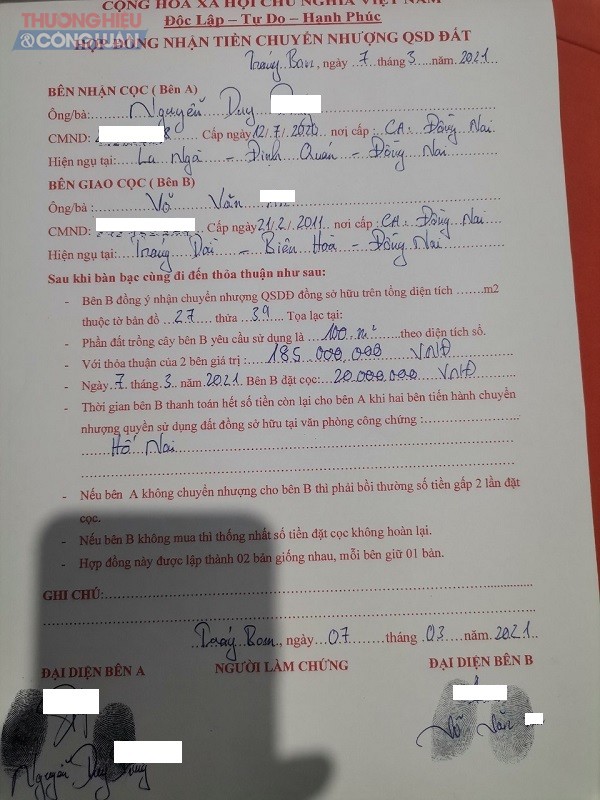 THƯƠNG HIỆU
& CÔNG LUẬN
CỘNG HÒA XÃ HỘI CHỦ NGHĨA VIỆT NAM
Độc Lập – Tự Do – Hạnh Phúc
HỢP ĐỒNG NHẬN TIỀN CHUYỂN NHƯỢNG QSD ĐẤT
Trảng Bom, ngày 7 tháng 3 năm 2021
BÊN NHẬN CỌC ( Bên A)
Ông/bà: Nguyễn Duy
CMND: Cấp ngày 12/7/2020 nơi cấp : CA. Đồng Nai
Hiện ngụ tại: La Ngà – Định Quán – Đồng Nai
BÊN GIAO CỌC ( Bên B)
Ông/bà : Võ Văn
CMND: Cấp ngày 21/2/2011 nơi cấp : CA. Đồng Nai
Hiện ngụ tại: Trảng Dài – Biên Hoà – Đồng Nai
Sau khi bàn bạc cùng đi đến thỏa thuận như sau:
- Bên B đồng ý nhận chuyển nhượng QSDĐ đồng sở hữu trên tổng diện tích ........m2
thuộc tờ bản đồ 27 thửa 39 Tọa lạc tại:
- Phần đất trồng cây bên B yêu cầu sử dụng là 100 m² theo diện tích sổ.
- Với thỏa thuận của 2 bên giá trị : 185.000.000 VNĐ
- Ngày 7 tháng 3 năm 2021. Bên B đặt cọc: 20.000.000 VNĐ
- Thời gian bên B thanh toán hết số tiền còn lại cho bên A khi hai bên tiến hành chuyển
nhượng quyền sử dụng đất đồng sở hữu tại văn phòng công chứng :
Hố Nai
- Nếu bên A không chuyển nhượng cho bên B thì phải bồi thường số tiền gấp 2 lần đặt
cọc.
- Nếu bên B không mua thì thống nhất số tiền đặt cọc không hoàn lại.
- Hợp đồng này được lập thành 02 bản giống nhau, mỗi bên giữ 01 bản.
GHI CHÚ:
Trảng Bom, ngày 07 tháng 03 năm 2021
ĐẠI DIỆN BÊN A NGƯỜI LÀM CHỨNG ĐẠI DIỆN BÊN B
Võ Văn
Nguyễn Duy